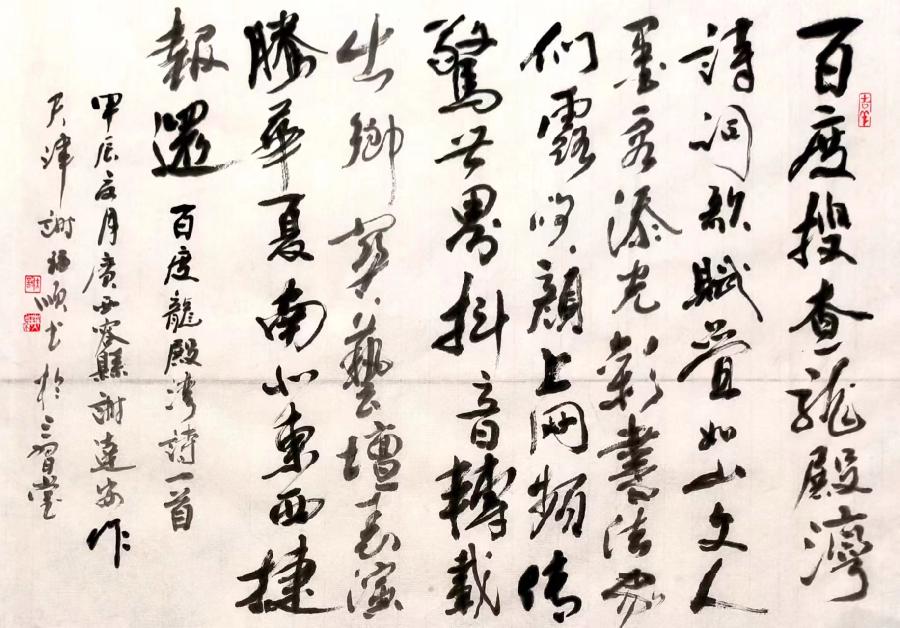 百度搜查龍殿灣
詩词歌賦叠如山文人
墨客添光彩書法家
们露咲顔上网頻传
驚世界抖音轉載
出鄉関藝壇表演
勝華夏南北東西捷
報還 百度龍殿湾詩一首
甲辰月廣西容縣謝達安作
天津謝福順书於三習堂